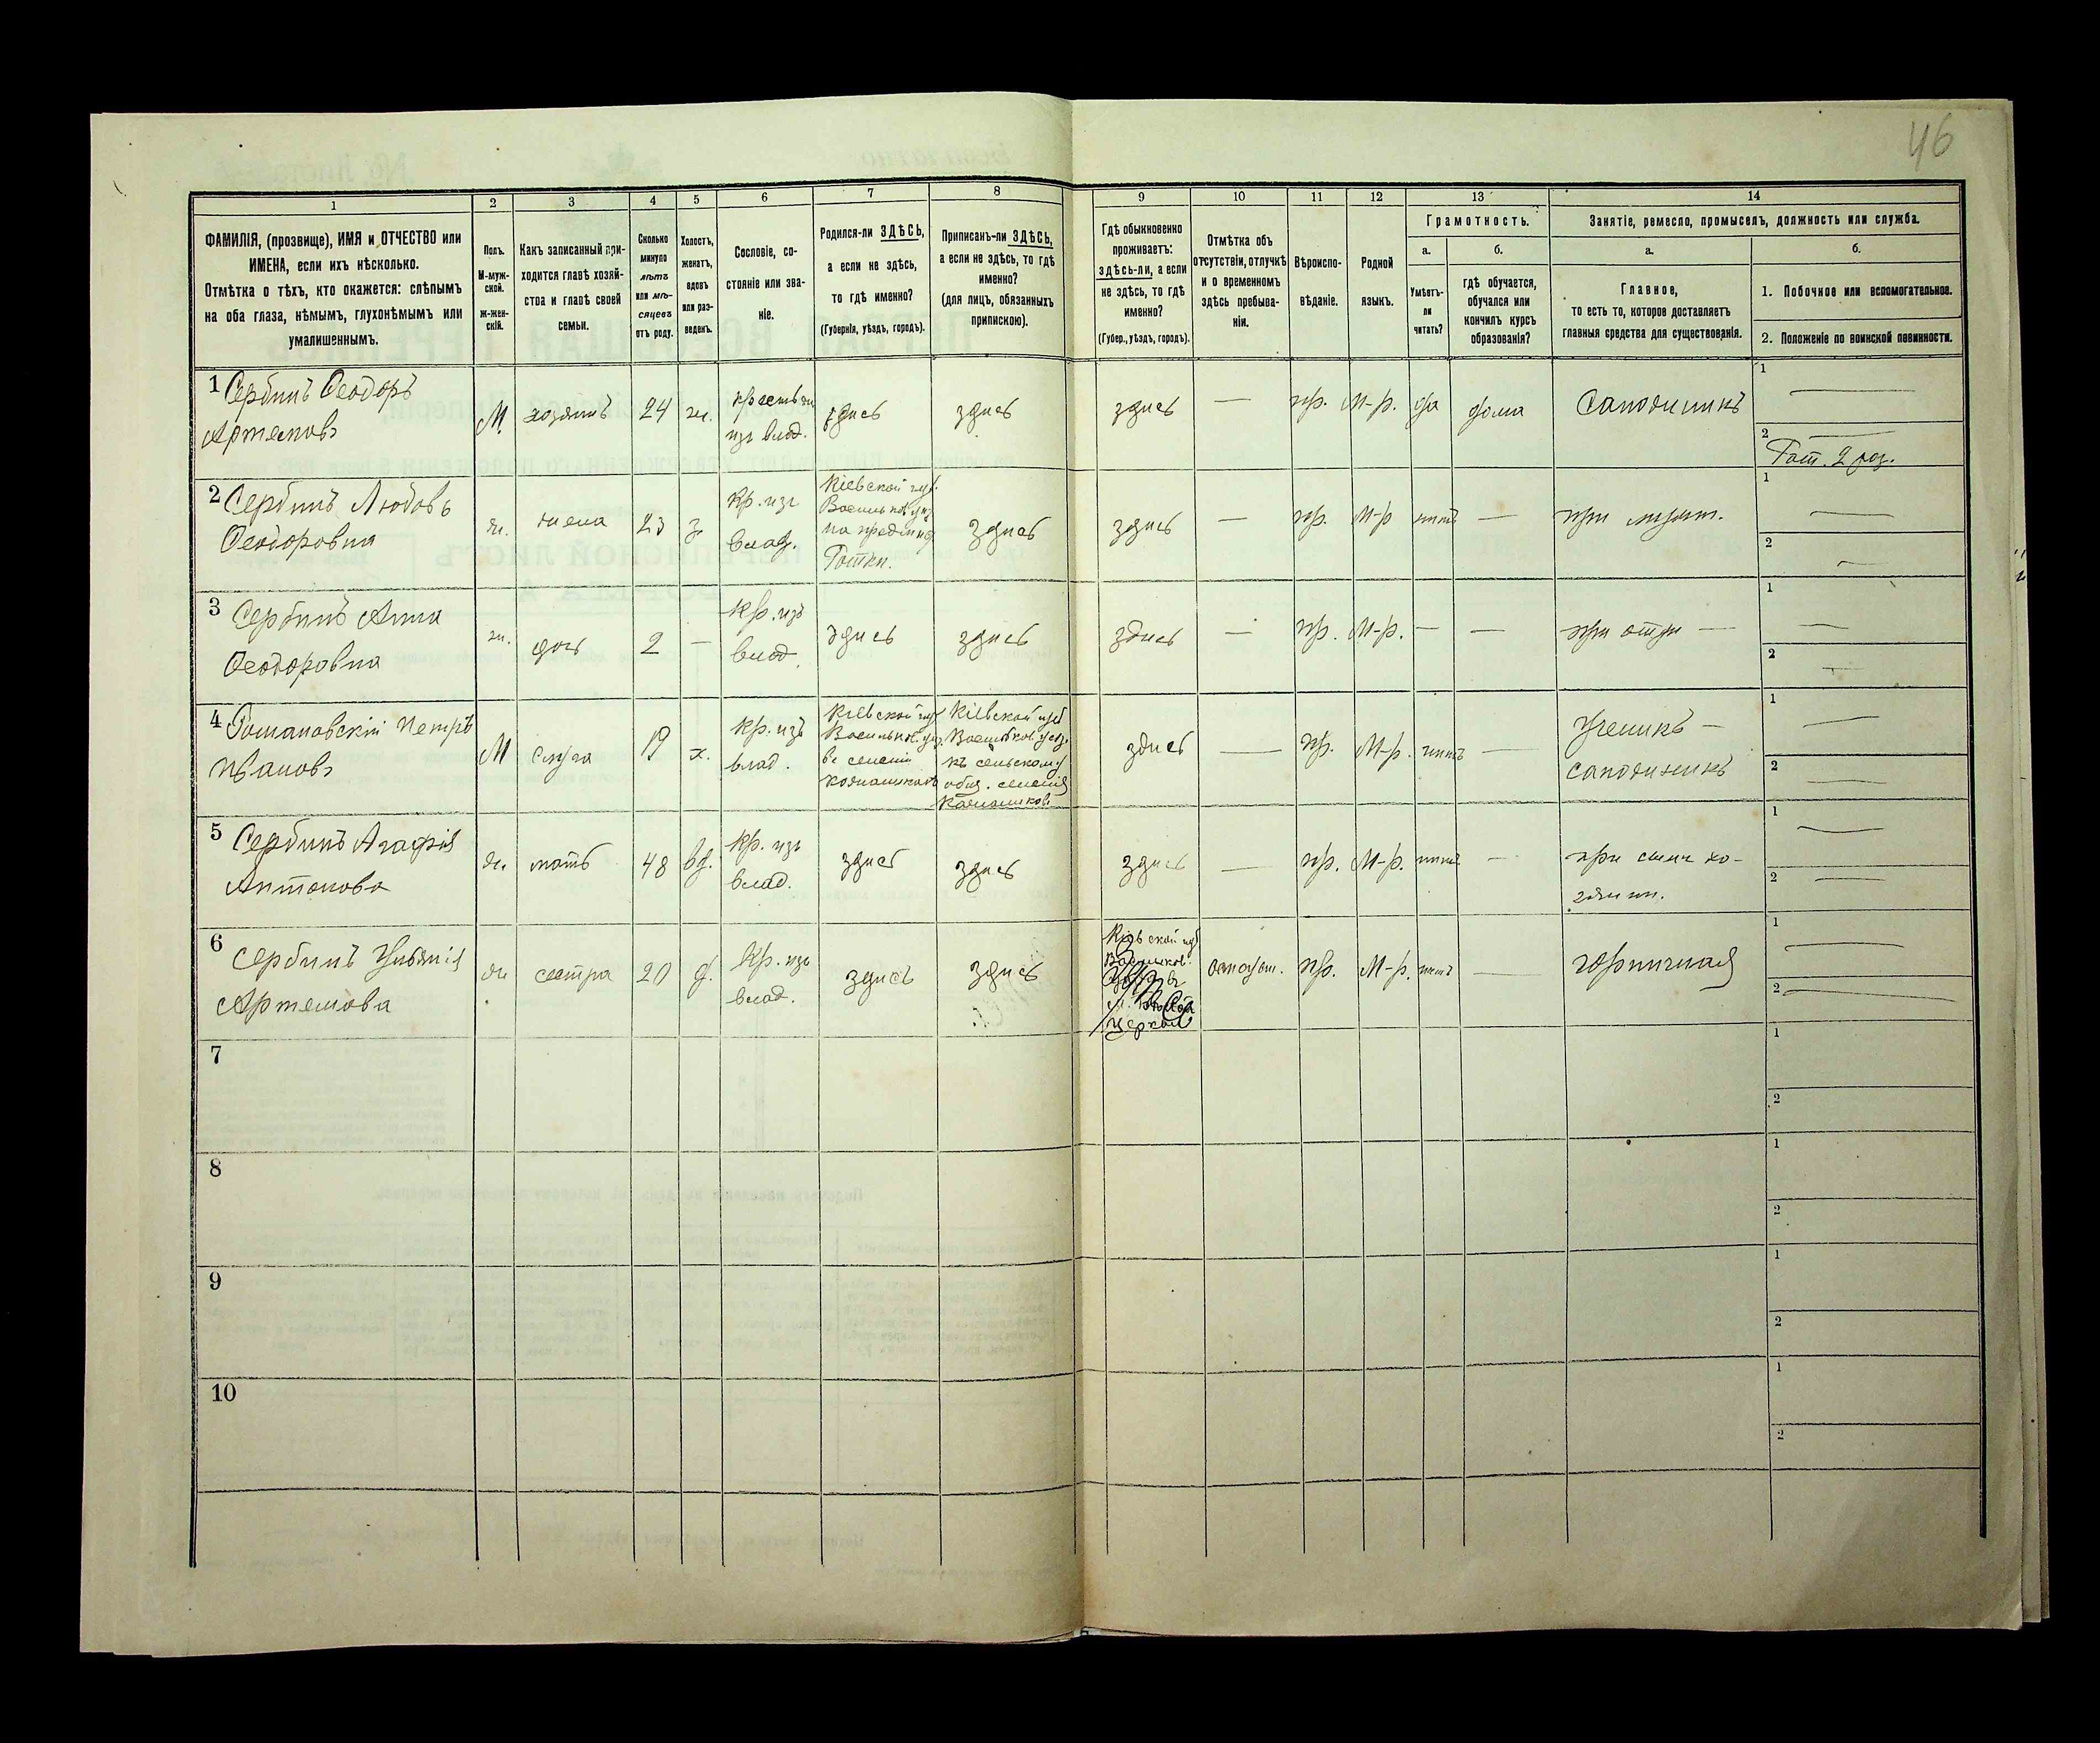 46
1
2
3
4
5
6
7
8
9
10
11
12
13
14
ФАМИЛІЯ, (прозвище), ИМЯ и ОТЧЕСТВО или
ИМЕНА, если ихъ нѣсколько.
Отмѣтка о тѣхъ, кто окажется: слѣпымъ
на оба глаза, нѣмымъ, глухонѣмымъ или
умалишеннымъ.
Полъ.
М-муж-
ской.
Ж-жен-
скій.
Какъ записанный при-
ходится главѣ хозяй-
ства и главѣ своей
семьи.
Сколько
минуло
лѣтъ
или мѣ-
сяцевъ
отъ роду.
Холостъ,
женатъ,
вдовъ
или раз-
веденъ.
Сословіе, со-
стояніе или зва-
ніе.
Родился-ли ЗДѢСЬ,
а если не здѣсь,
то гдѣ именно?
(Губернія, уѣздъ, городъ).
Приписанъ-ли ЗДѢСЬ,
а если не здѣсь, то гдѣ
именно?
(для лицъ, обязанныхъ
припискою).
Гдѣ обыкновенно
проживаетъ:
здѣсь-ли, а если
не здѣсь, то гдѣ
именно?
(Губер., уѣздъ, городъ).
Отмѣтка объ
отсутствіи, отлучкѣ
и о временномъ
здѣсь пребыва-
ніи.
Вѣроиспо-
вѣданіе.
Родной
языкъ.
Грамотность.
а.
Умѣетъ-
ли
читать?
б.
гдѣ обучается,
обучался или
кончилъ курсъ
образованія?
Занятіе, ремесло, промыселъ, должность или служба.
а.
Главное,
то есть то, которое доставляетъ
главныя средства для существованія.
б.
1. Побочное или вспомогательное.
2. Положеніе по воинской повинности.
1 Сербинъ Ѳеодоръ
Артемовъ
М
хозяинъ
24
ж.
из влад.
здись
здись
здись
—
пр.
М-р.
да
дома
Сапожникъ
1 —
2 —
Рат. 2 раз.
2 Сербинъ Любовь
Ѳеодоровна
ж.
жена
23
з
Кр. изъ
влад.
Кіевской губ.
здись
здись
—
пр.
М-р
нитъ
—
1 —
2 —
3 Сербинъ Анна
Ѳеодоровна
ж.
дочь
2
—
Кр. изъ
влад.
здись
здись
здись
—
пр.
М-р.
—
—
при отци —
1 —
2 —
4 Романовскій Петръ
Ивановъ
М
слуга
х.
Кр. изъ
влад.
Кіевской губ
Васильков. уез.
въ селеніи
Кіевской губ
Васильков. уез.
къ сельскому
общ. селенія
здись
—
пр.
М-р.
нитъ
—
Ученикъ —
сапожникъ
1 —
2 —
5 Сербинъ Агафія
Антонова
ж.
мать
48
вд.
Кр. изъ
влад.
здись
здись
здись
—
пр.
М-р.
нитъ
—
при сыни хо-
зяини.
1 —
2 —
6 Сербинъ Ульянія
Артемова
ж
сестра
20
д.
Кр. изъ
влад.
здись
здись
Кіевской губ
Васильков.
Церковь
пр.
М-р.
нитъ
—
горничная
1 —
2 —
7
1
2
8
1
2
9
1
2
10
1
2